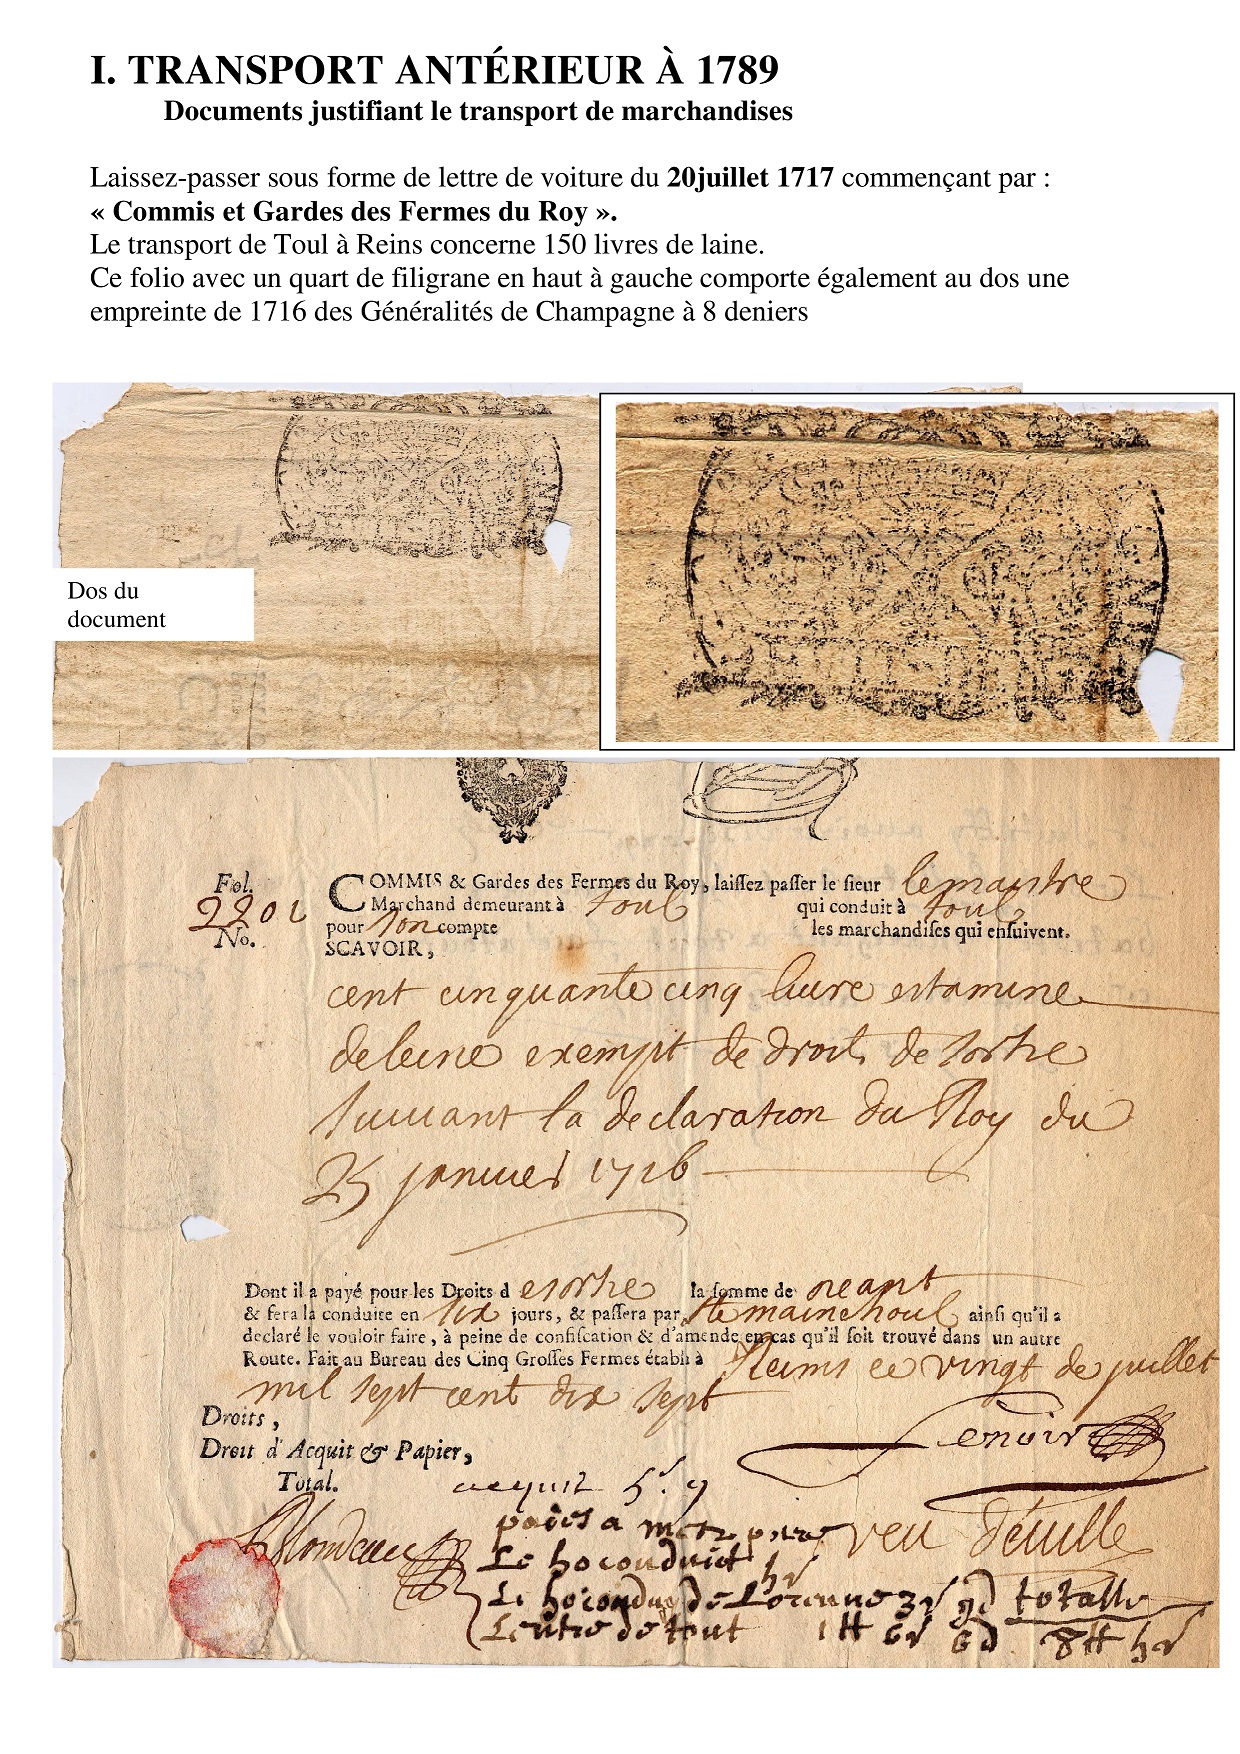 I. TRANSPORT ANTÉRIEUR À 1789
Documents justifiant le transport de marchandises
Laissez-passer sous forme de lettre de voiture du 20juillet 1717 commençant par :
« Commis et Gardes des Fermes du Roy ».
Le transport de Toul à Reins concerne 150 livres de laine.
Ce folio avec un quart de filigrane en haut à gauche comporte également au dos une
empreinte de 1716 des Généralités de Champagne à 8 deniers
Dos du
document
Fol.
2201
No.
COMMIS & Gardes des Fermes du Roy, laiſſez paſſer le ſieur lemaistre
Marchand demeurant à toul qui conduit à toul
pour son compte les marchandiſes qui enſuivent.
SCAVOIR,
cent cinquante cinq livre estamine
de leine exempt de droit de sortie
suivant la declaration du Roy du
25 janvier 1716
Dont il a payé pour les Droits d esortie la ſomme de neant
& fera la conduite en six jours, & paſſera par Ste mainehoul ainſi qu'il a
declaré le vouloir faire, à peine de confiſcation & d'amende en cas qu'il ſoit trouvé dans un autre
Route. Fait au Bureau des Cinq Groſſes Fermes établi à Reims ce vingt de juillet
mil sept cent dix sept
Droits,
Lenoir
Droit d'Acquit & Papier,
Total.
acquit 5s 9
Blondeau
veu
Le
de Lorenne totalle